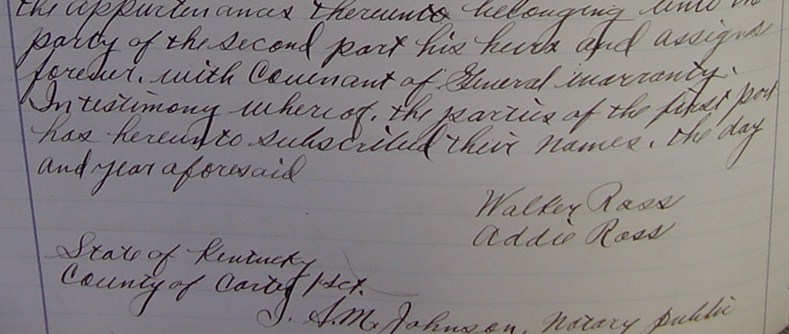 the appurtenances thereunto belonging unto
party of the second part his heirs and assigns
forever. with Covenant of General warranty.
In testimony whereof, the parties of the first part
has hereunto subscribed their names. the day
and year aforesaid
Walker Ross
Addie Ross
State of Kentucky
County of Carter / sct.
I. S.M. Johnson, Notary public